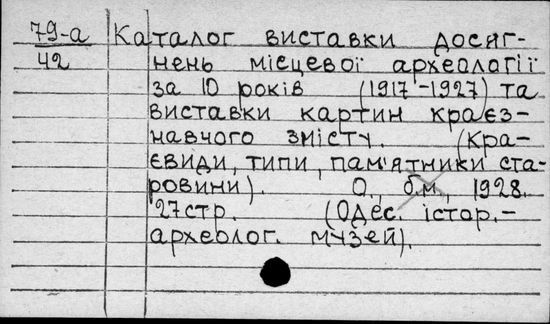 79-а Каталог виставки досяг-
42 нень місцевої археології
за 10 років (1917-1927) та
виставки картин краєз-
навчого змісту. (Кра-
євиди, типи, пам'ятники ста-
ровини). О., б.м., 1928.
27стр. (Одес. істор.-
археолог. музей).